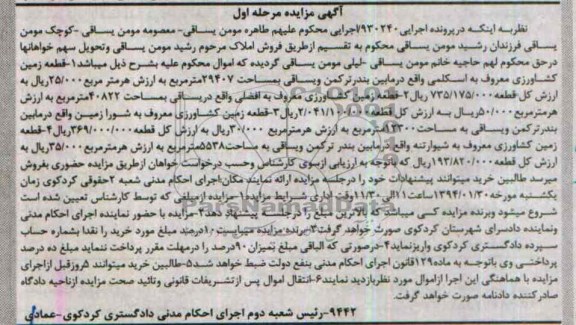 آگهی مزایده مرحله اول
نظربه اینکه درپرونده اجرایی۹۳۰۲۴۰/اجرایی محکوم علیهم طاهره مومن یساقی- معصومه مومن یساقی -کوچک مومن
یساقی فرزندان رشید مومن یساقی محکوم به تقسیم ازطریق فروش املاک مرحوم رشید مومن یساقی وتحویل سهم خواهانها
درحق محکوم لهم حاجیه خانم مومن یساقی -لیلی مومن یساقی گردیده که اموال محکوم علیه بشرح ذیل میباشد۱-قطعه زمین
کشاورزی معروف به اسکلمی واقع درمابین بندرترکمن ویساقی بمساحت ۲۹۴۰۷مترمربع به ارزش هرمتر مربع۲۵/۰۰۰ریال به
ارزش کل قطعه ۷۳۵/۱۷۵/۰۰۰ ریال۲-قطعه زمین کشاورزی معروف به افضلی واقع دریساقی بمساحت ۴۰۸۲۲مترمربع به ارزش
هرمترمربع ۵۰/۰۰۰ریال بـه ارزش کل قطعه ۲/۰۴۱/۱۰۰/۰۰۰ریال۳-قطعه زمین کشاورزی معروف به شورا زمین واقع درمابین
بندرترکمن ویساقی به مساحت۱۲۳۰۰مترمربع به ارزش هرمترمربع ۳۰/۰۰۰ریال به ارزش کل قطعه ۳۶۹/۰۰۰/۰۰۰ریال۴-قطعه
زمین کشاورزی معروف به شیوارتنه واقع درمابین بندر ترکمن ویساقی به مساحت۵۵۳۸مترمربع به ارزش هرمترمربع۳۵/۰۰۰ریال به
ارزش کل قطعه۱۹۳/۸۲۰/۰۰۰ریال که باتوجه به ارزیابی ازسوی کارشناس وحسب درخواست خواهان ازطریق مزایده حضوری بفروش
میرسد طالبین خرید میتوانند پیشنهادات خود را درجلسه مزایده ارائه نمایند مکان:اجرای احکام مدنی شعبه ۲حقوقی کردکوی زمان
یکشنبه مورخه۱۳۹۴/۰۱/۳۰ساعت۱۱الی۱۱/۳۰وقت اداری شرایط مزایده ۱-مزایده از مبلغی که توسط کارشناس تعیین شده است
شروع میشود وبرنده مزایده کسی میباشد که بالاترین مبلغ را درجلسه پیشنهاد دهد۲-مزایده با حضور نماینده اجرای احکام مدنی
ونماینده دادسرای شهرستان کردکوی صورت خواهد گرفت۳-برنده مزایده میبایست ۱۰درصد مبلغ مورد خرید را نقدا بشماره حساب
سپرده دادگستری کردکوی واریزنماید۴-درصورتی که الباقی مبلغ بمیزان ۹۰درصد را درمهلت مقرر پرداخت ننماید مبلغ ده درصد
پرداختی وی باتوجه به ماده۱۲۹قانون اجرای احکام مدنی بنفع دولت ضبط خواهد شد۵-طالبین خرید میتوانند ۵روزقبل ازاجرای
مزایده با هماهنگی این اجرا ازاموال مورد نظربازدید نمایند۶-انتقال اموال پس ازتشریفات قانونی وتائید صحت مزایده ازناحیه دادگاه
صادرکننده دادنامه صورت خواهد گرفت.
۹۴۴۲-رئیس شعبه دوم اجرای احکام مدنی دادگستری کردکوی-عمادی